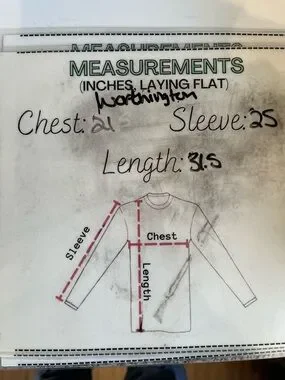 MEASUREMENTS
MEASUREMENTS
(INCHES, LAYING FLAT)
Worthington
Chest: 21 Sleeve: 25
Length: 31.5
Sleeve
Chest
Length